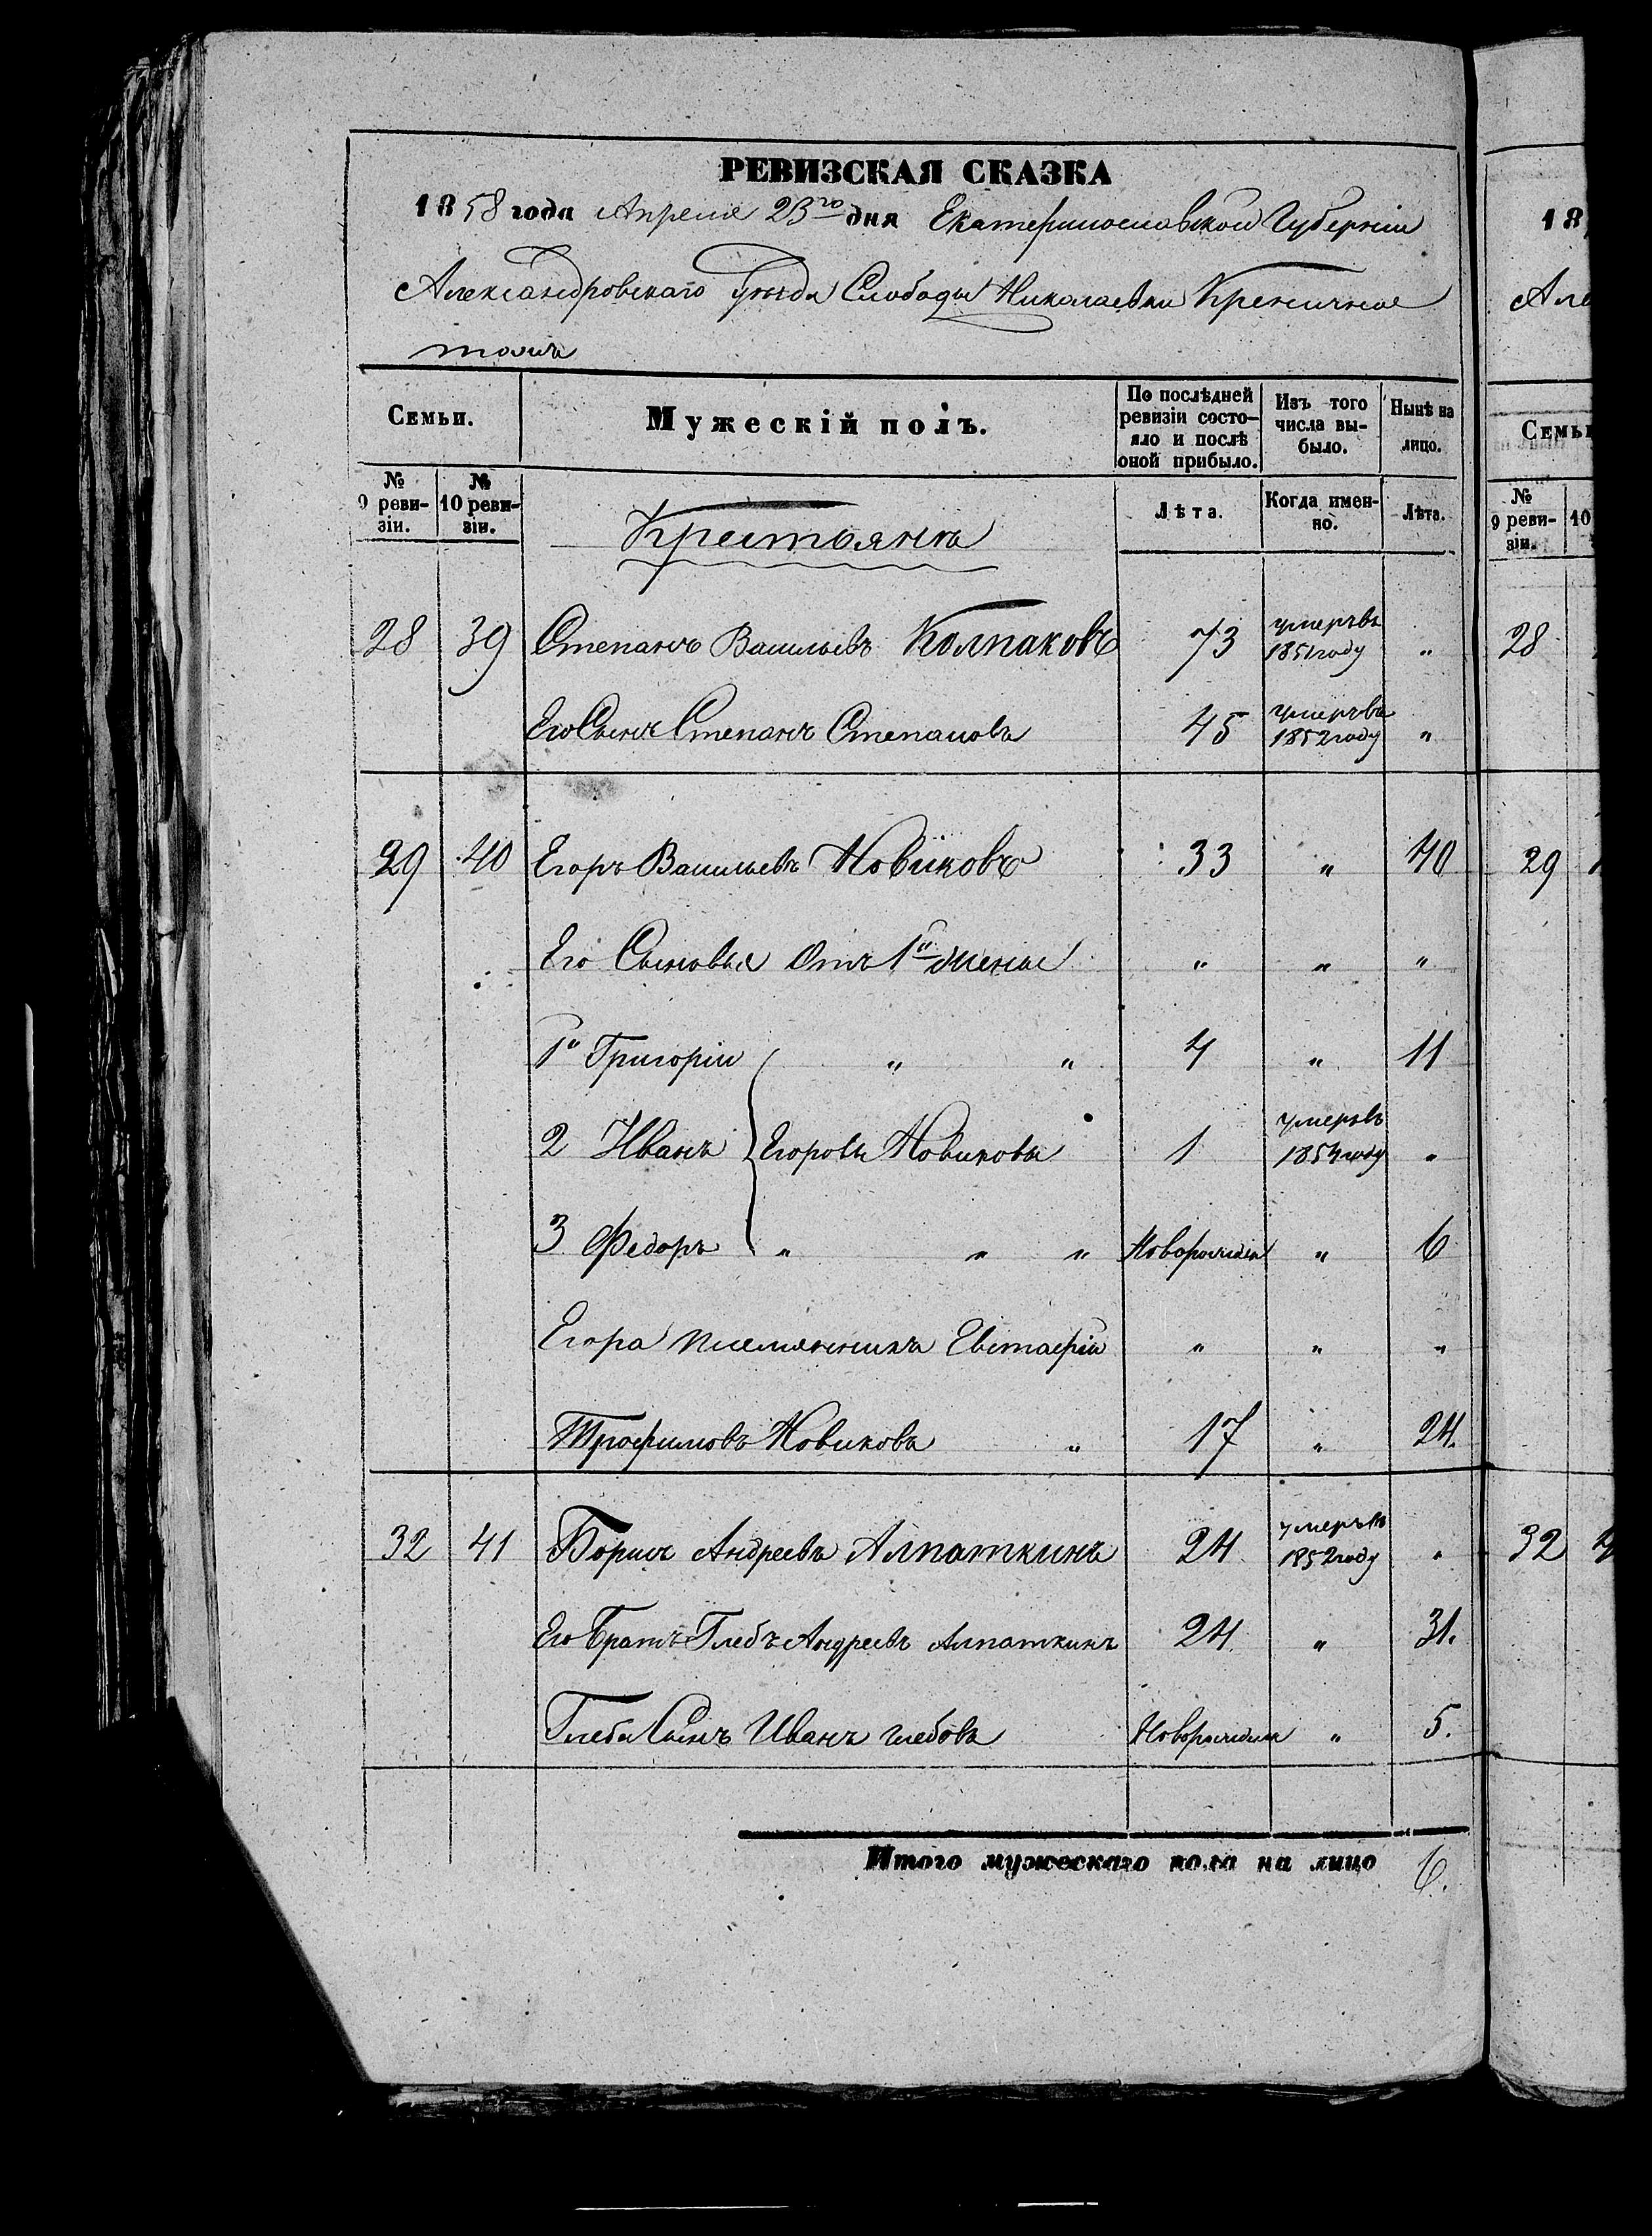 РЕВИЗСКАЯ СКАЗКА
1858 года Апреля 23го дня Екатеринославской Губерніи
Александровскаго Уѣзда Слободы Николаевки Креничное
тожъ
Семьи.
Мужескій полъ.
По послѣдней ревизіи состояло и послѣ оной прибыло.
Изъ того числа выбыло.
Нынѣ на лицо.
№ 9 ревизіи.
№ 10 ревизіи.
Крестьянъ
Лѣта.
Когда именно.
Лѣта.
28 39 Степанъ Васильевъ Колпаковъ 73 умеръ въ 1851 году "
Его Сынъ Степанъ Степановъ 45 умеръ въ 1852 году "
29 40 Егоръ Васильевъ Новиковъ 33 " 40
Его Сыновья Отъ 1й жены " " "
1й Григорій " " 4 " 11
2 Иванъ Егоровы Новиковы 1 умеръ въ 1854 году "
3 Федоръ " " " Новорожден " 6
Егора племянникъ Евстафій " " "
Трофимовъ Новиковъ " 17 " 24.
32 41 Борисъ Андреевъ Алпаткинъ 24 умеръ въ 1852 году "
Его Братъ Глебъ Андреевъ Алпаткинъ 24 " 31.
Глеба Сынъ Иванъ глебовъ Новорожден " 5.
Итого мужескаго пола на лицо 6.
18
Але
Семьи
№ 9 ревизіи.
10
28
29
32 4